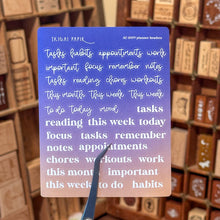 IKIGAI PAPIR
planner headers
tasks habits appointments work
important focus remember notes
tasks reading chores workouts
this month this week this week
to do today mood tasks
reading this week today
focus tasks remember
notes appointments
chores workouts work
this month important
this week to do habits